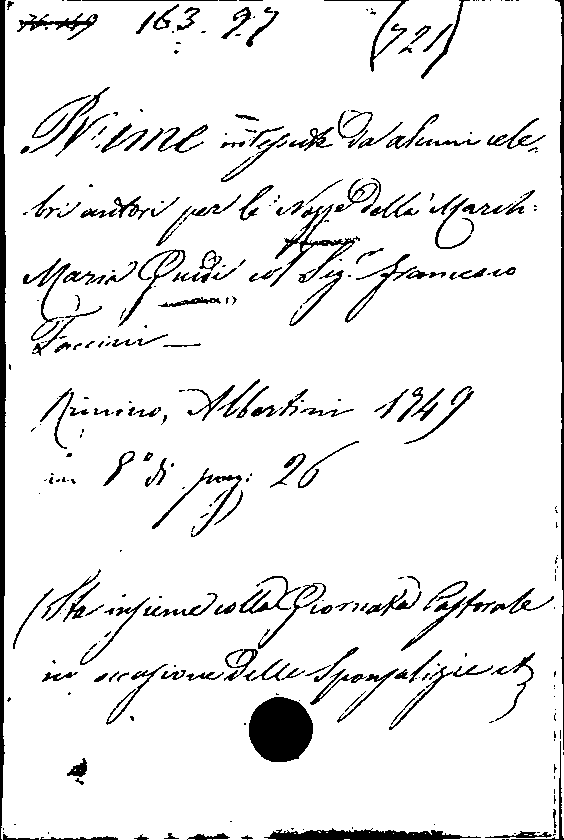 163. 97 (721)
Rime intessute da alcuni cele-
bri autori per le Nozze della March:
Maria Guidi col Sig.r Francesco
Faccini —
Rimino, Albertini 1749
in 8° di pag: 26
(Sta insieme colla Giornata Pastorale
in occasione delle Sponsalizie et